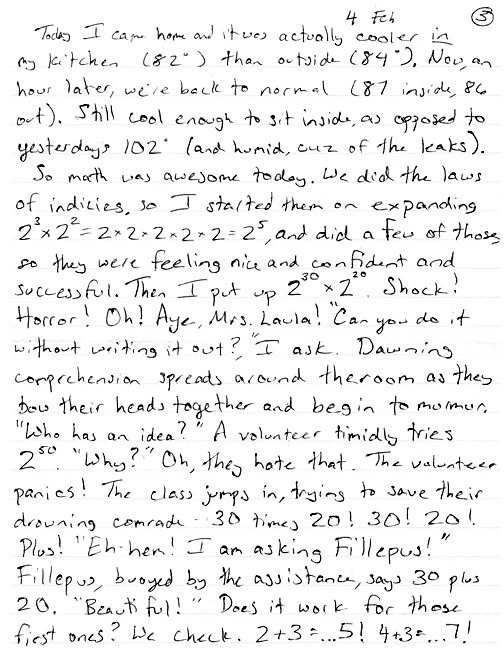 4 Feb ③
Today I came home and it was actually cooler in
my kitchen (82°) than outside (84°). Now, an
hour later, we're back to normal (87 inside, 86
out). Still cool enough to sit inside, as opposed to
yesterdays 102° (and humid, cuz of the leaks).
So math was awesome today. We did the laws
of indicies, so I started them on expanding
2³ × 2² = 2 × 2 × 2 × 2 × 2 = 2⁵, and did a few of those
so they were feeling nice and confident and
successful. Then I put up 2³⁰ × 2²⁰. Shock!
Horror! Oh! Aye, Mrs. Laula! "Can you do it
without writing it out?" I ask. Dawning
comprehension spreads around the room as they
bow their heads together and begin to murmur.
"Who has an idea?" A volunteer timidly tries
2⁵⁰. "Why?" Oh, they hate that. The volunteer
panics! The class jumps in, trying to save their
drowning comrade - 30 times 20! 30! 20!
Plus! "Eh-hem! I am asking Fillepus!"
Fillepus, buoyed by the assistance, says 30 plus
20. "Beautiful!" Does it work for those
first ones? We check. 2+3=...5! 4+3=...7!